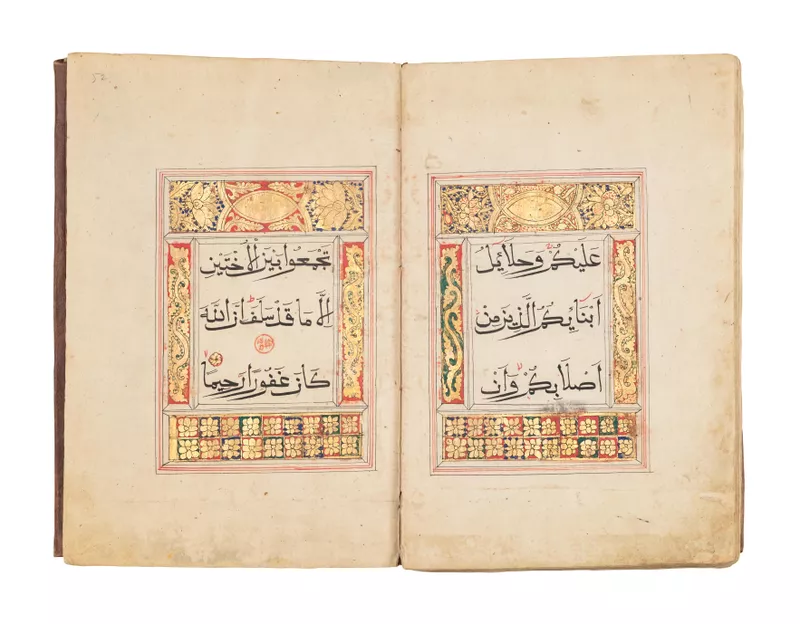 عَلَيْكُمْ وَحَلَائِلُ
أَبْنَائِكُمُ الَّذِينَ مِنْ
أَصْلَابِكُمْ وَأَنْ
تَجْمَعُوا بَيْنَ الْأُخْتَيْنِ
إِلَّا مَا قَدْ سَلَفَ إِنَّ اللَّهَ
كَانَ غَفُورًا رَحِيمًا
52